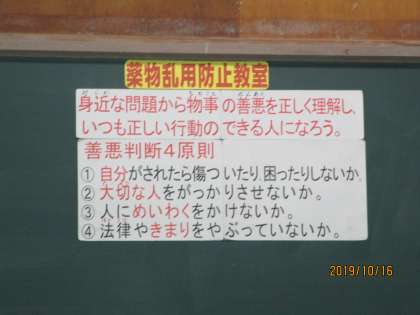 薬物乱用防止教室
身近な問題から物事の善悪を正しく理解し、
いつも正しい行動のできる人になろう。
善悪判断4原則
① 自分がされたら傷ついたり困ったりしないか。
② 大切な人をがっかりさせないか。
③ 人にめいわくをかけないか。
④ 法律やきまりをやぶっていないか。
2019/10/16